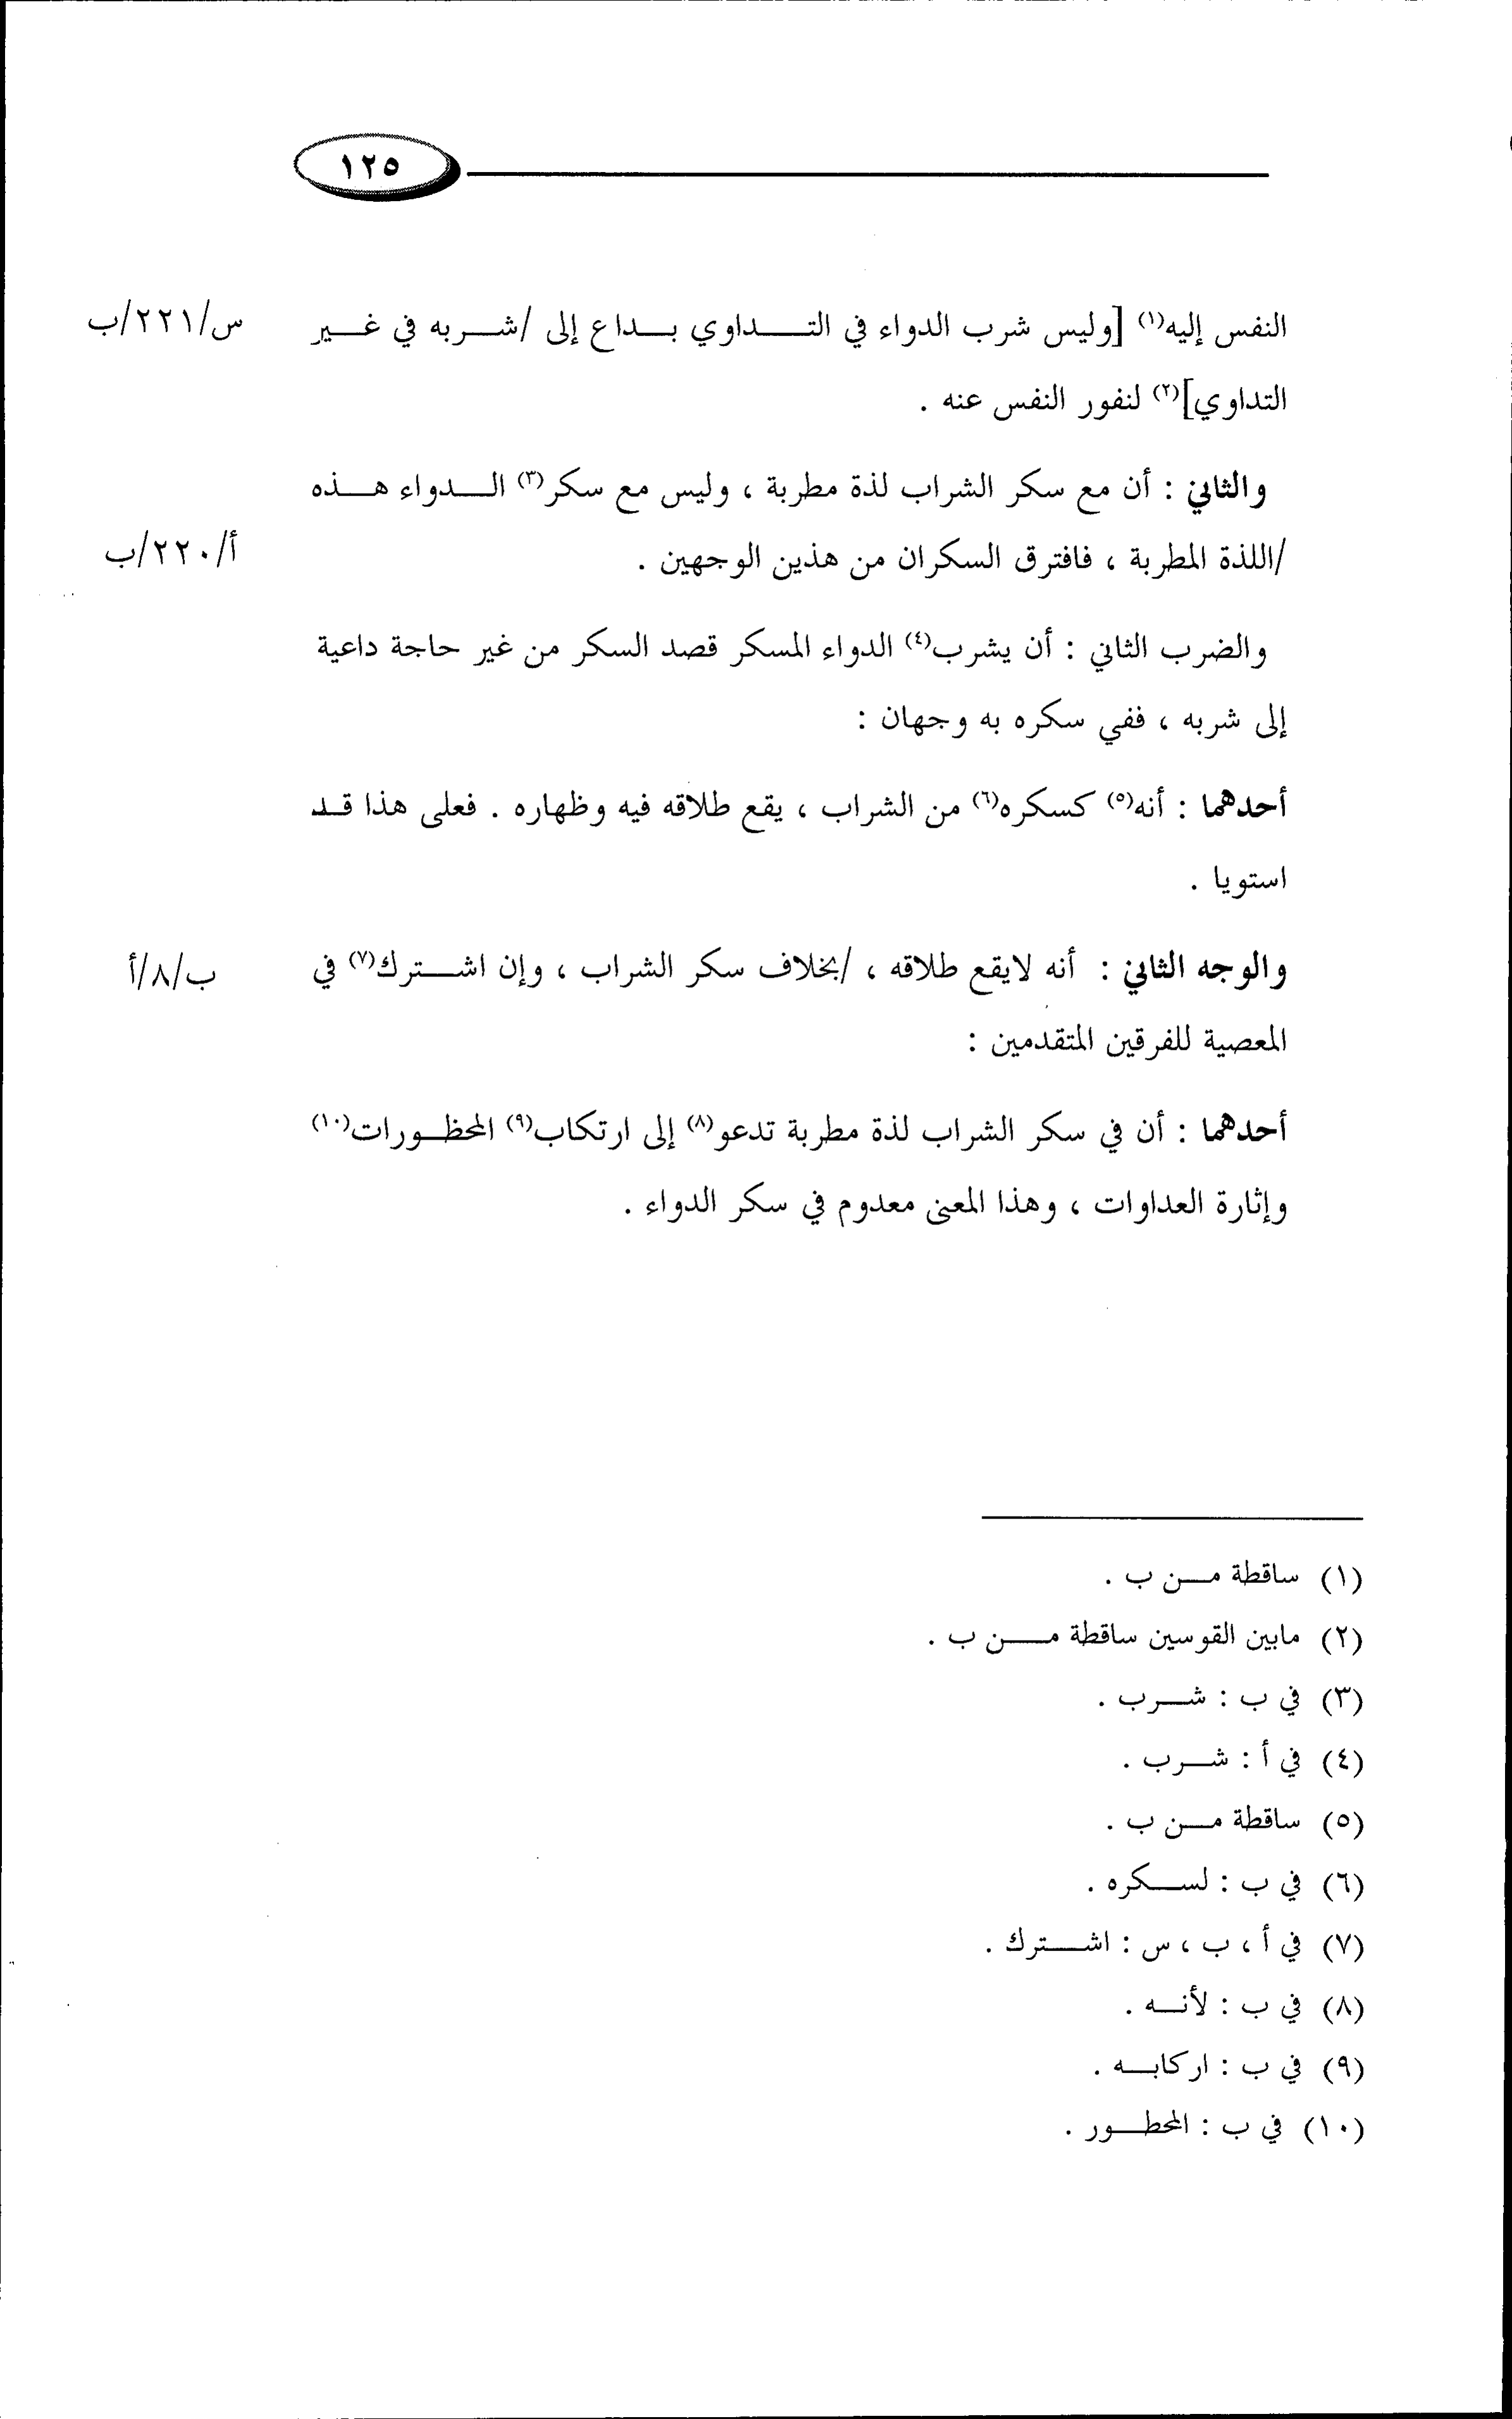 ١٢٥
النفس إليه(١) [وليس شرب الدواء في التـــداوي بـــداع إلى /شـــربه في غـــير س/٢٢١/ب
التداوي](٢) لنفور النفس عنه .
والثاني : أن مع سكر الشراب لذة مطربة ، وليس مع سكر(٣) الـــدواء هـــذه
/اللذة المطربة ، فافترق السكران من هذين الوجهين . أ/٢٢٠/ب
والضرب الثاني : أن يشرب(٤) الدواء المسكر قصد السكر من غير حاجة داعية
إلى شربه ، ففي سكره به وجهان :
أحدهما : أنه(٥) كسكره(٦) من الشراب ، يقع طلاقه فيه وظهاره . فعلى هذا قـد
استويا .
والوجه الثاني : أنه لايقع طلاقه ، /بخلاف سكر الشراب ، وإن اشـــترك(٧) في ب/٨/أ
المعصية للفرقين المتقدمين :
أحدهما : أن في سكر الشراب لذة مطربة تدعو(٨) إلى ارتكاب(٩) المحظـورات(١٠)
وإثارة العداوات ، وهذا المعنى معدوم في سكر الدواء .
(١) ساقطة مـــن ب .
(٢) مابين القوسين ساقطة مـــن ب .
(٣) في ب : شـــرب .
(٤) في أ : شـــرب .
(٥) ساقطة مـــن ب .
(٦) في ب : لســـكره .
(٧) في أ ، ب ، س : اشـــترك .
(٨) في ب : لأنـــه .
(٩) في ب : اركابـــه .
(١٠) في ب : المحطـــور .